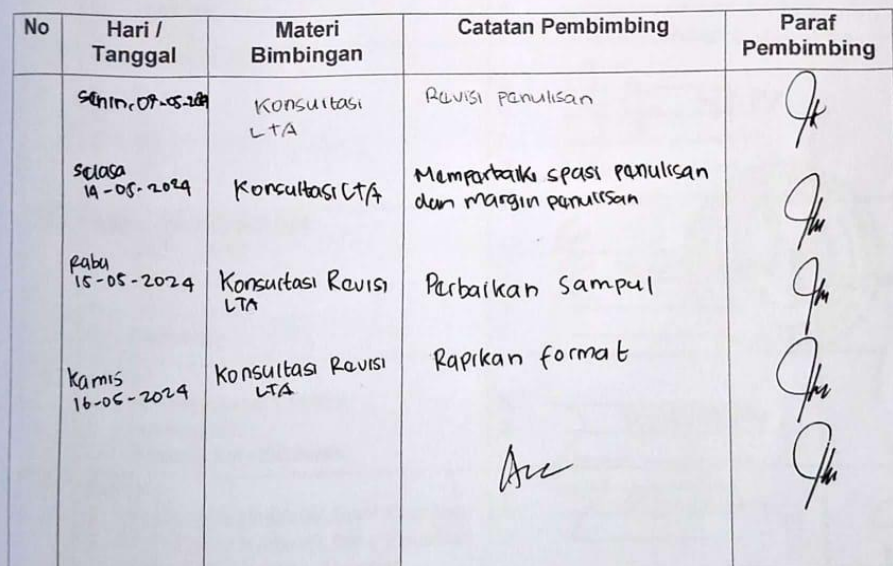 No
Hari /
Tanggal
Materi
Bimbingan
Catatan Pembimbing
Paraf
Pembimbing
Konsultasi
LTA
Revisi penulisan
Selasa
14-05-2024
Konsultasi LTA
Memperbaiki spasi penulisan
dan margin penulisan
Rabu
15-05-2024
Konsultasi Revisi
LTA
Perbaikan Sampul
Kamis
16-05-2024
Konsultasi Revisi
LTA
Rapikan format
Acc